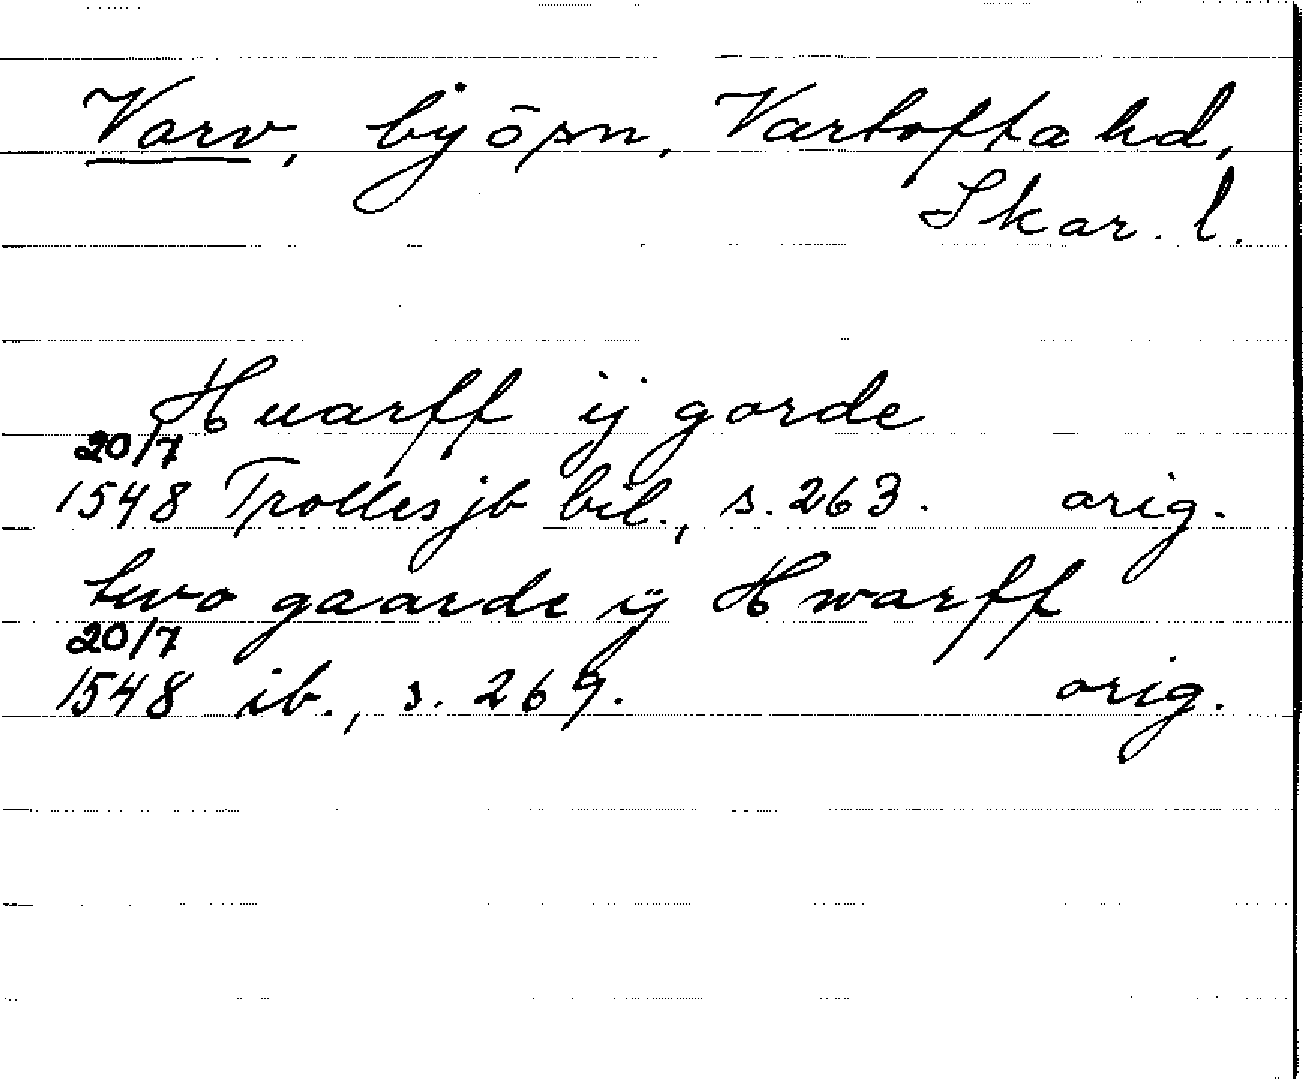 Varv, by ö sn, Vartofta hd,
Skar. l.
Huarff ij gorde
20/7
1548 Trolles jb bil., s. 263. orig.
two gaarde ij Hwarff
20/7
1548 ib., s. 269. orig.